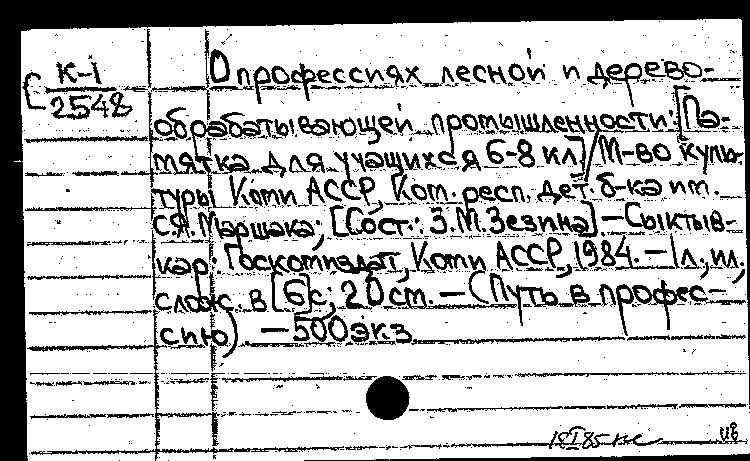 К-1
2548
О профессиях лесной и дерево-
обрабатывающей промышленности: [Па-
мятка для учащихся 6-8 кл]/М-во куль-
туры Коми АССР, Ком. респ. дет. б-ка им.
С.Я. Маршака; [Сост.: З.М. Зезина]. — Сыктыв-
кар: Госкомиздат, Коми АССР, 1984. — 1 л., ил.,
слож. в [6] с; 20 см. — (Путь в профес-
сию). — 500 экз.
18 I 85